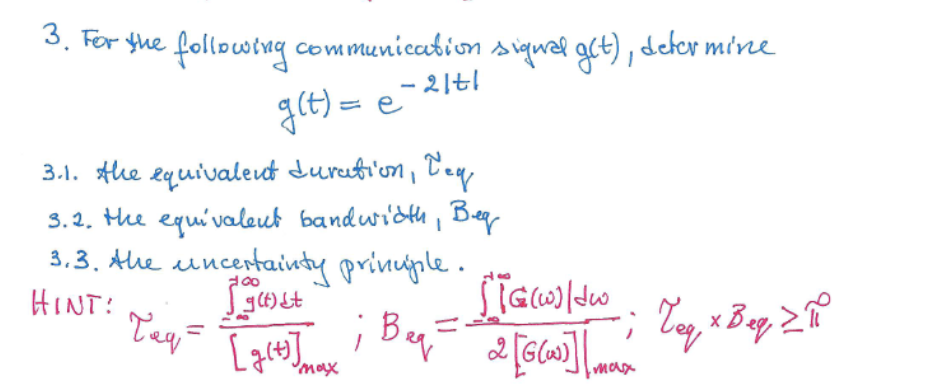 3. For the following communication signal g(t), determine
g(t) = e^{-2|t|}
3.1. the equivalent duration, τeq
3.2. the equivalent bandwidth, Beq
3.3. the uncertainty principle.
HINT: τeq = ∫_{-∞}^{+∞} g(t)dt / [g(t)]max ; Beq = ∫_{-∞}^{+∞} |G(ω)|dω / 2[G(ω)]|max ; τeq × Beq ≥ π